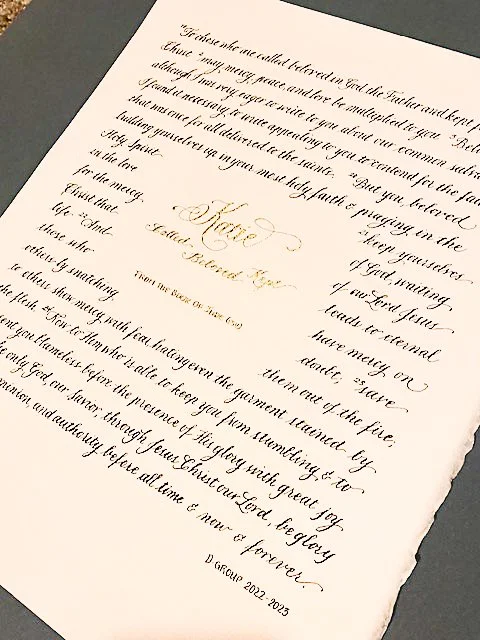 "To those who are called, beloved in God the Father and kept f
Christ 2 may mercy, peace, and love be multiplied to you. 3 Belo
although I was very eager to write to you about our common salva
I found it necessary to write appealing to you to contend for the fai
that was once for all delivered to the saints. 20 But you, beloved
building yourselves up in your most holy faith & praying in the
Holy Spirit 21 keep yourselves
in the love of God, waiting
for the mercy of our Lord Jesus
Christ that leads to eternal
life 22 And have mercy on
those who doubt; 23 save
others by snatching them out of the fire;
to others show mercy with fear, hating even the garment stained by
the flesh. 24 Now to Him who is able to keep you from stumbling & to
ent you blameless before the presence of His glory with great joy
e only God, our Savior, through Jesus Christ our Lord, be glory
minion, and authority before all time & now & forever.
Katie
Called Beloved Kept
FROM THE BOOK OF JUDE
D GROUP 2022-2023